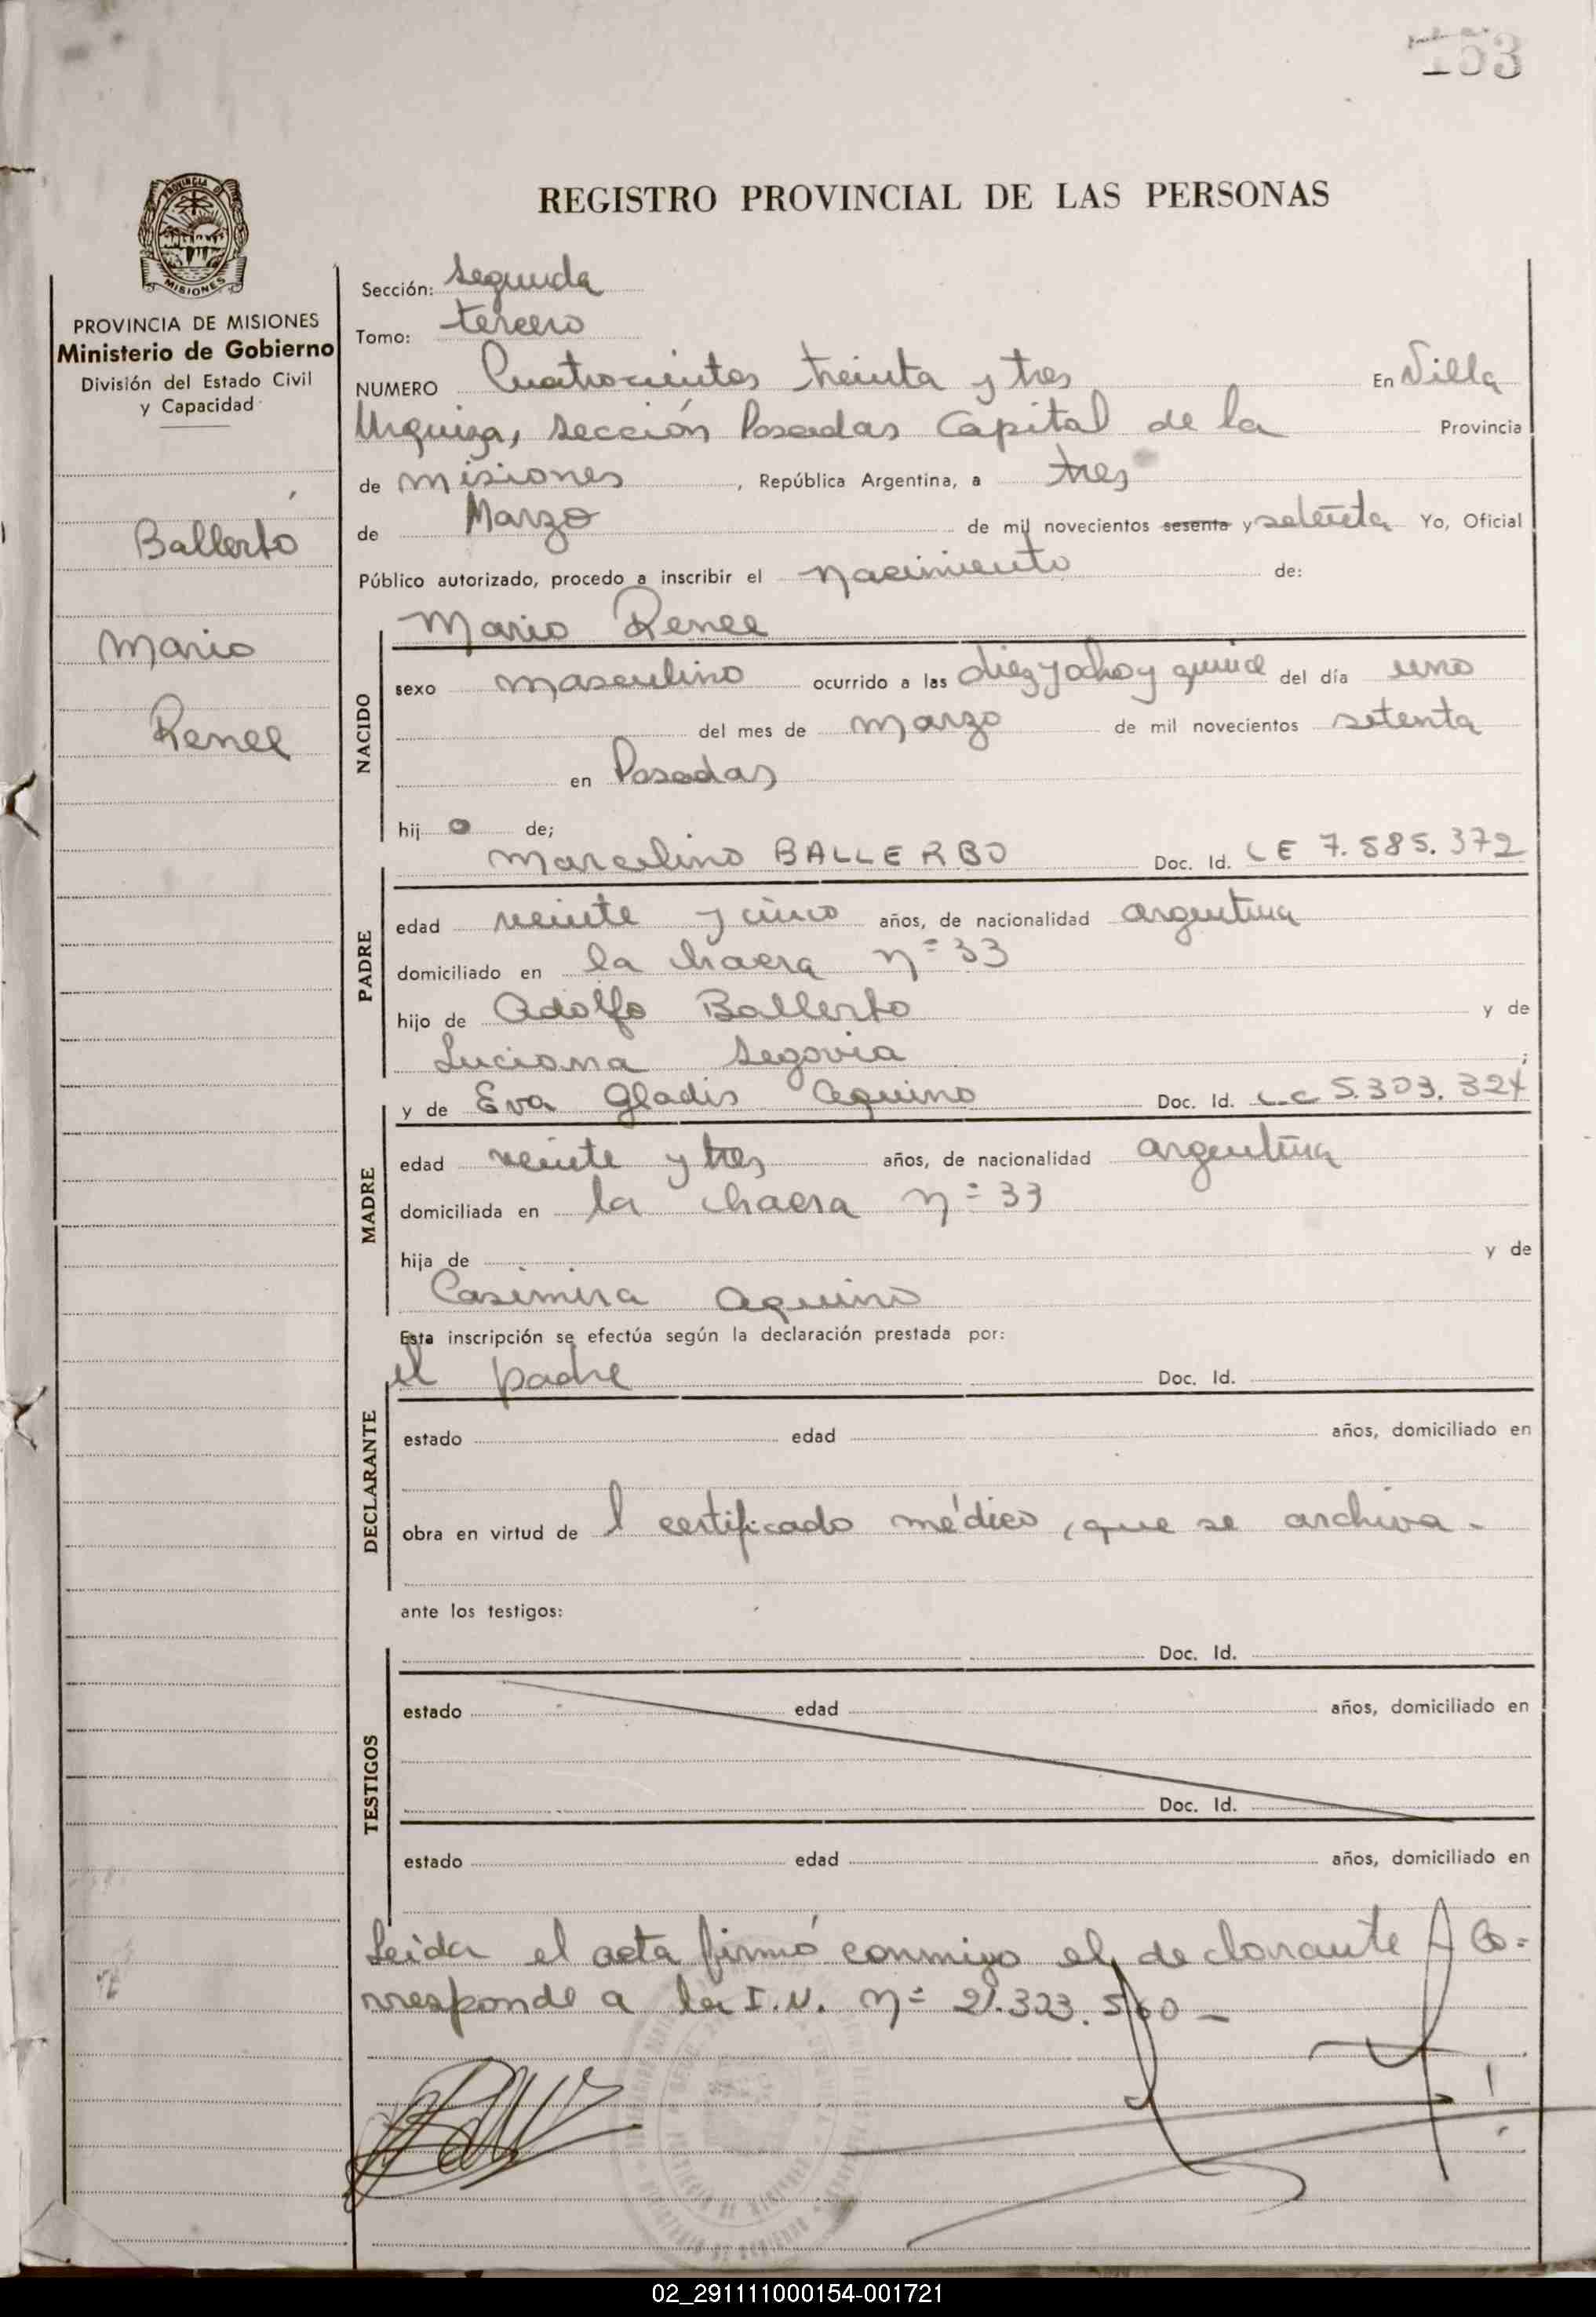 153
REGISTRO PROVINCIAL DE LAS PERSONAS
PROVINCIA DE MISIONES
Ministerio de Gobierno
División del Estado Civil
y Capacidad
Ballerbo
Mario
Renee
Sección: Segunda
Tomo: tercero
NUMERO Cuatrocientos treinta y tres En Villa
Urquiza, sección Posadas Capital de la Provincia
de misiones, República Argentina, a tres
de Marzo de mil novecientos sesenta y setenta Yo, Oficial
Público autorizado, procedo a inscribir el nacimiento de:
NACIDO
Mario Renee
sexo masculino ocurrido a las diez y ocho y quince del día uno
del mes de marzo de mil novecientos setenta
en Posadas
hij o de;
PADRE
Marcelino BALLERBO Doc. Id. LE 7.585.372
edad veinte y cinco años, de nacionalidad argentina
domiciliado en la chacra nº 33
hijo de Adolfo Ballerbo y de
Luciana Segovia;
MADRE
y de Eva Gladis Aquino Doc. Id. LC 5.303.324
edad veinte y tres años, de nacionalidad argentina
domiciliada en la chacra nº 33
hija de y de
Casimira Aquino
Esta inscripción se efectúa según la declaración prestada por:
DECLARANTE
el padre Doc. Id.
estado edad años, domiciliado en
obra en virtud de l certificado médico, que se archiva.
ante los testigos:
TESTIGOS
Doc. Id.
estado edad años, domiciliado en
Doc. Id.
estado edad años, domiciliado en
Leida el acta firmó conmigo el declarante Co=
rresponde a la I.N. nº 21.323.560 -
02_291111000154-001721